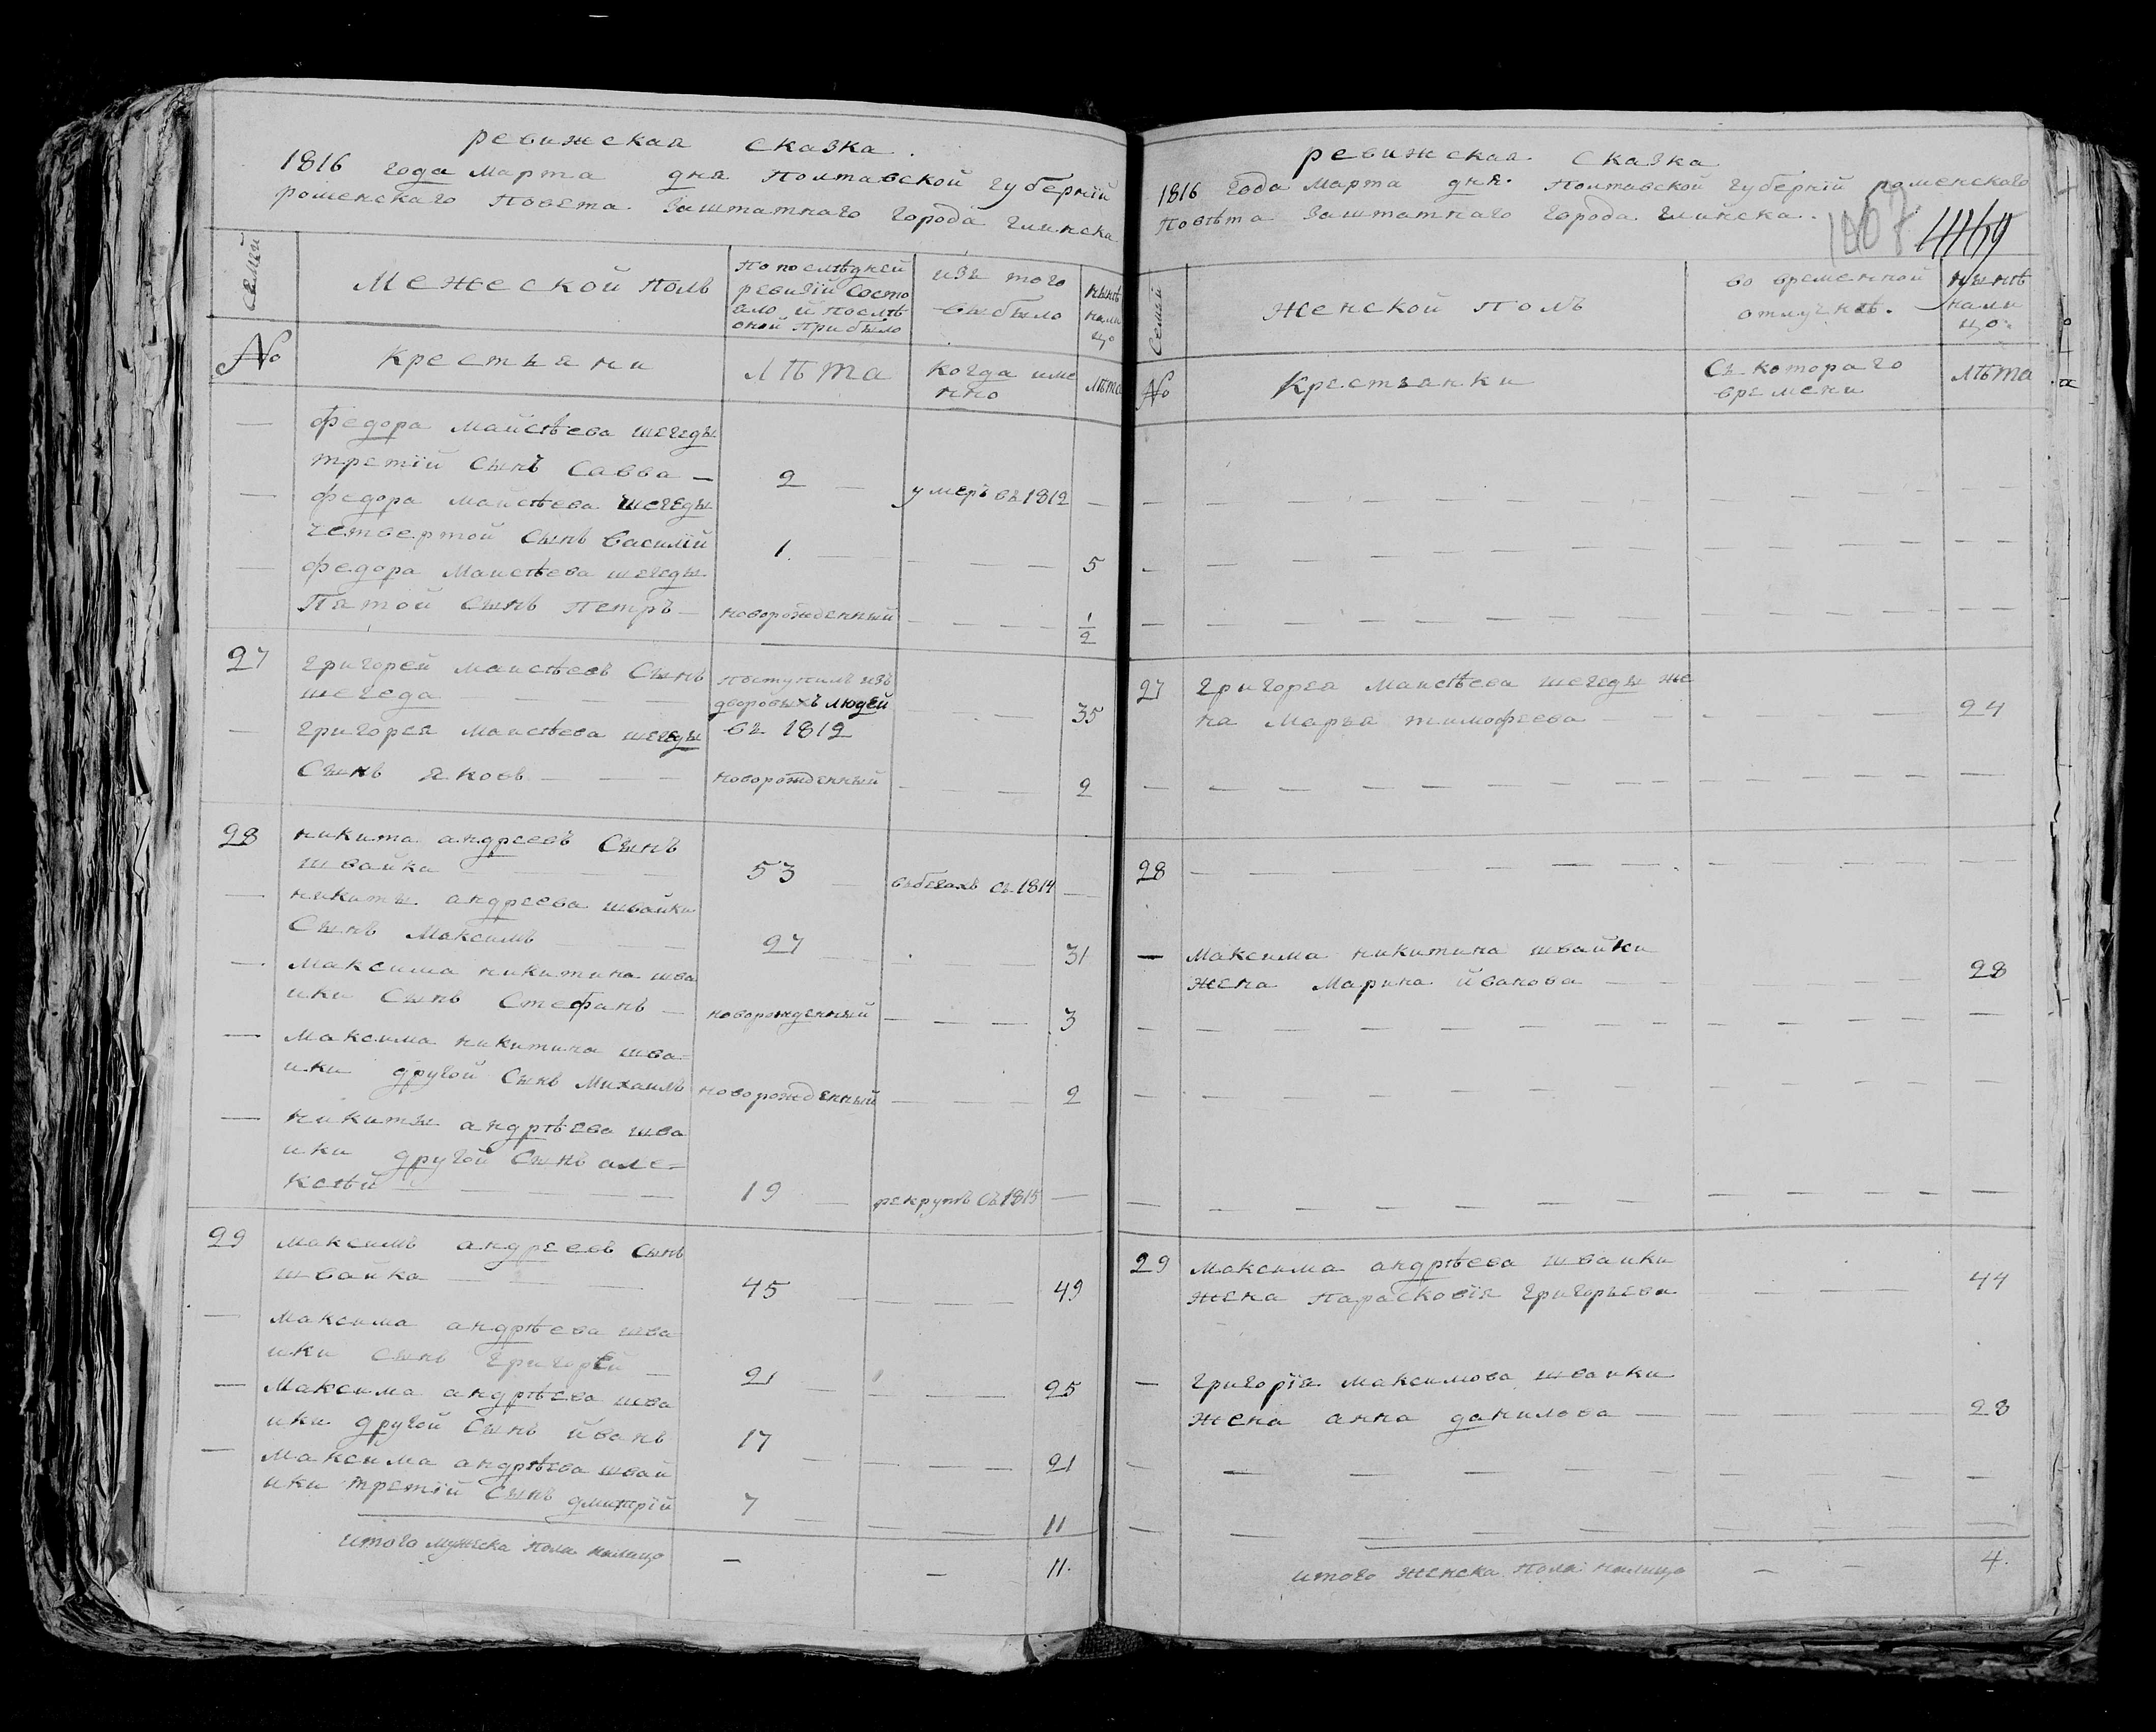 ревижская сказка.
1816 года марта дня Полтавской губернїй
роменскаго Повета заштатнаго города глинска
Семьй
Межеской полъ
По последней
ревизїй состо
ало й послѣ
оной прибыло
изъ того
выбыло
нынѣ
нали
цо
№
Крестьяни
лѣта
когда име
нно
лѣта
— федора майсѣева шегеды
третїй сынъ Савва — 2 — умеръ въ 1812 —
— федора майсѣева шегеды
четвертой сынъ василїй 1 — — — — 5
— федора маисѣева шегеды
Пятой сынъ петръ — новорожденный — — — — 1/2
27 григорей маисѣевъ сынъ поступилъ изъ
шегеда — — — дворовыхъ людей — — 35
— григорея маисѣева шегеды въ 1812
сынъ яковъ — — — новорожденный — — — 2
28 никита андреевъ сынъ
швайка — — — 53 — въбегахъ съ 1814 —
— никиты андреева швайки
сынъ максимъ — — — 27 — — — 31
— максима никитина шва
ики сынъ стефанъ — новорожденный — — — 3
— максима никитина шва=
ики другой сынъ михаилъ новорожденный — — — 2
— никиты андрѣева шва
ики другой сынъ але=
ксѣй — — — — 19 — рекрутъ съ 1815 —
29 максимъ андреевъ сынъ
швайка — — — 45 — — — 49
— максима андрѣева шва
ики сынъ григорей — 21 — — — — 25
— максима андрѣева шва
ики другой сынъ йванъ 17 — — — — 21
— максима андрѣева швай
ики третїй сынъ дмитрїй 7 — — — — 11
итого мужеска пола налицо — — 11.
ревижская сказка
1816 года марта дня. Полтавской губернїй роменскаго
повѣта заштатнаго города глинска.
1107
1169
Семьй
Женской полъ
во временной
отлучкѣ.
нынѣ
нали
цо.
№
Крестьянки
съ котораго
времени
лѣта
27 григорея маисѣева шегеды же
на марья тимофеева — — — — 24
28
— максима никитина швайки
жена марина йванова — — — — 28
29 максима андрѣева шваики
жена парасковїя григорьева — — — 44
— григорїя максимова шваики
жена анна данилова — — — — 28
итого женска пола налицо — — 4.